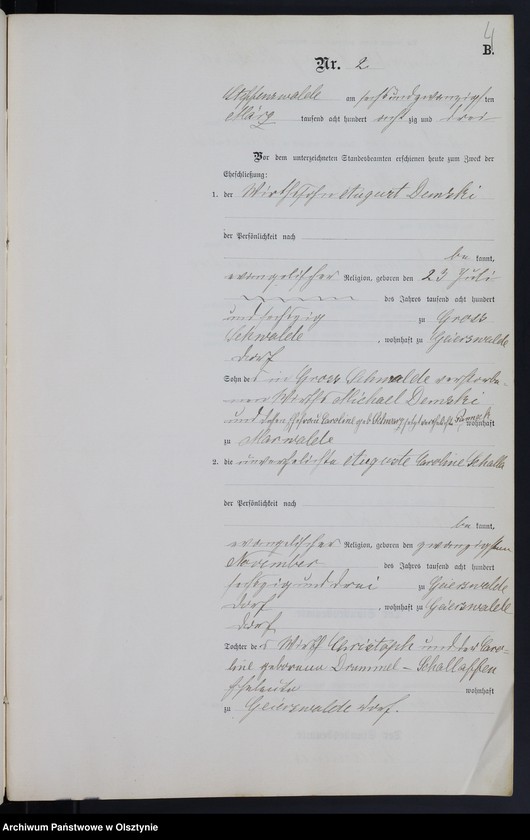 4
B.
Nr. 2
am sechsundzwanzigsten
März tausend acht hundert achtzig und drei
Vor dem unterzeichneten Standesbeamten erschienen heute zum Zweck der
Eheschließung:
1. der Wirthssohn August Demski
der Persönlichkeit nach
bekannt,
evangelischer Religion, geboren den 23 Juli
des Jahres tausend acht hundert
und sechzig zu Gross
, wohnhaft zu Geierswalde
Dorf
Sohn des in Gross verstorbe-
nen Wirths Michael Demski
und dessen Ehefrau Caroline geb wohnhaft
zu Marwalde
2. die unverehelichte Auguste Caroline Schalla
der Persönlichkeit nach
bekannt,
evangelischer Religion, geboren den zwanzigsten
November des Jahres tausend acht hundert
sechzig und drei zu Geierswalde
Dorf , wohnhaft zu Geierswalde
Dorf
Tochter der Wirth Christoph und der Caro-
line geborene Drummel - Schallaschen
Eheleute wohnhaft
zu Geierswalde Dorf.
Archiwum Państwowe w Olsztynie